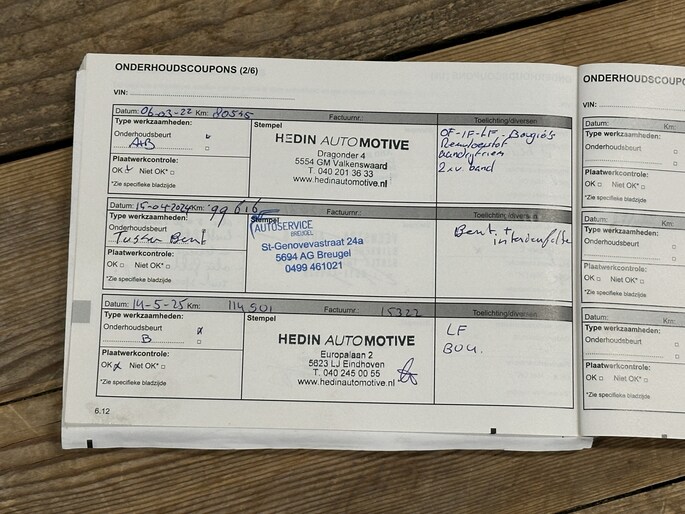 ONDERHOUDSCOUPONS (2/6)
VIN:
Datum: 06-03-22 Km: 80545
Factuurnr.:
Toelichting/diversen
Type werkzaamheden:
Onderhoudsbeurt
A+B
Plaatwerkcontrole:
OK Niet OK*
*Zie specifieke bladzijde
Stempel
HEDIN AUTOMOTIVE
Dragonder 4
5554 GM Valkenswaard
T. 040 201 36 33
www.hedinautomotive.nl
OF-IF-LF-Bougie's
Remvloeistof
Aandrijfriem
Datum: 15-04-2024 Km: 99616
Factuurnr.:
Toelichting/diversen
Type werkzaamheden:
Onderhoudsbeurt
Tussen Beurt
Plaatwerkcontrole:
OK Niet OK*
*Zie specifieke bladzijde
Stempel
AUTOSERVICE
BREUGEL
St-Genovevastraat 24a
5694 AG Breugel
0499 461021
Beurt +
interieurfilter
Datum: 14-5-25 Km: 114501
Factuurnr.: 15322
Toelichting/diversen
Type werkzaamheden:
Onderhoudsbeurt
B
Plaatwerkcontrole:
OK Niet OK*
*Zie specifieke bladzijde
Stempel
HEDIN AUTOMOTIVE
Europalaan 2
5623 LJ Eindhoven
T. 040 245 00 55
www.hedinautomotive.nl
LF
BOU.
6.12
ONDERHOUDSCOUPO
VIN:
Datum: Km:
Type werkzaamheden:
Onderhoudsbeurt
Plaatwerkcontrole:
OK Niet OK*
*Zie specifieke bladzijde
Datum: Km:
Type werkzaamheden:
Onderhoudsbeurt
Plaatwerkcontrole:
OK Niet OK*
*Zie specifieke bladzijde
Datum: Km:
Type werkzaamheden:
Onderhoudsbeurt
Plaatwerkcontrole:
OK Niet OK*
*Zie specifieke bladzijde